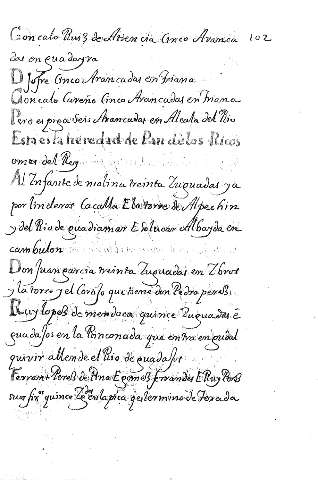 Gonçalo Ruiz de Atiencia Cinco Arança 102
das en guadayra
D Jofre Cinco Arançadas en triana
Gonçalo Careño Cinco Arançadas en triana
Pero espiga Seis Arançadas en Alcala del Rio
Esta es la heredad de Pan de los Ricos
omes del Rey
Al Infante de molina treinta Yuguadas ya
por linderos Cacalla E la torre de Alpechin
y del Rio de guadiamar E el lugar Albayda en
cambullon
Don Juan garcia treinta Yuguadas en
y la torre y el que tiene don Pedro perez
Ruy lopez de mendoça quince Yuguadas e
en la Rinconada que entra en guadal
quivir allende el Rio de
Ferrant Perez de Pina E gomez ferrandez E Ruy Perez
sus quince en la que es termino de Texada